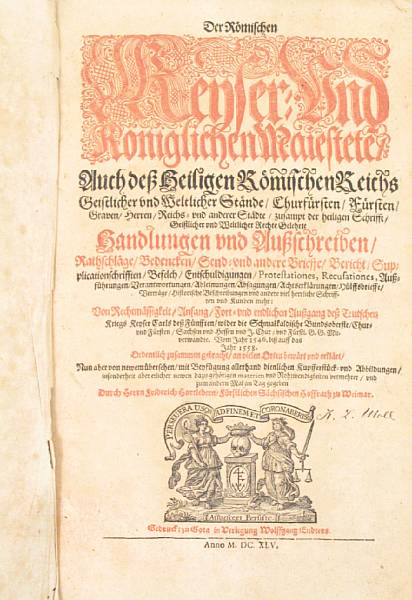 Der Römischen
Keyser- Und
Königlichen Maiestete/
Auch deß Heiligen Römischen Reichs
Geistlicher vnd Weltlicher Stände/ Churfürsten/ Fürsten/
Graven/ Herren/ Reichs- vnd anderer Städte/ zusampt der heiligen Schrifft/
Geistlicher vnd Weltlicher Rechte Gelehrte
Handlungen vnd Außschreiben/
Rathschläge/ Bedencken/ Send- vnd andere Brieffe/ Bericht/ Sup-
plicationschrifften/ Befelch/ Entschuldigungen/ Protestationes, Recusationes, Auß-
führungen/ Verantwortungen/ Ableinungen/ Absagungen/ Achtserklärungen/ Hülffsbrieffe/
Verträge/ Historische Beschreibungen vnd andere viel herrliche Schriff-
ten vnd Kunden mehr:
Von Rechtmässigkeit/ Anfang/ Fort- vnd endlichen Außgang deß Teutschen
Kriegs Keyser Carls deß Fünfften/ wider die Schmalkaldische Bundsoberste/ Chur-
vnd Fürsten/ Sachsen vnd Hessen/ vnd J. Chur- vnd Fürstl. G. G. Mit-
verwandte. Vom Jahr 1546. biß auff das
Jahr 1558.
Ordentlich zusammen gebracht/ an vielen Orten bewärt vnd erklärt/
Nun aber von newem übersehen/ mit Beyfügung allerhand dienlichen Kupfferstück- vnd Abbildungen/
insonderheit aber etlicher newen dazu gehörigen materien vnd Nothwendigkeiten vermehret/ vnd
zum andern Mal an Tag gegeben
Durch Herrn Friderich Hortledern/ Fürstlichen Sächsischen Hoffrath zu Weimar.
PERSEVERA USQ; AD FINEM ET CORONABERIS
Assuesceri Perfice
Gedruckt zu Gota in Verlegung Wolffgang Endters.
Anno M. DC. XLV.